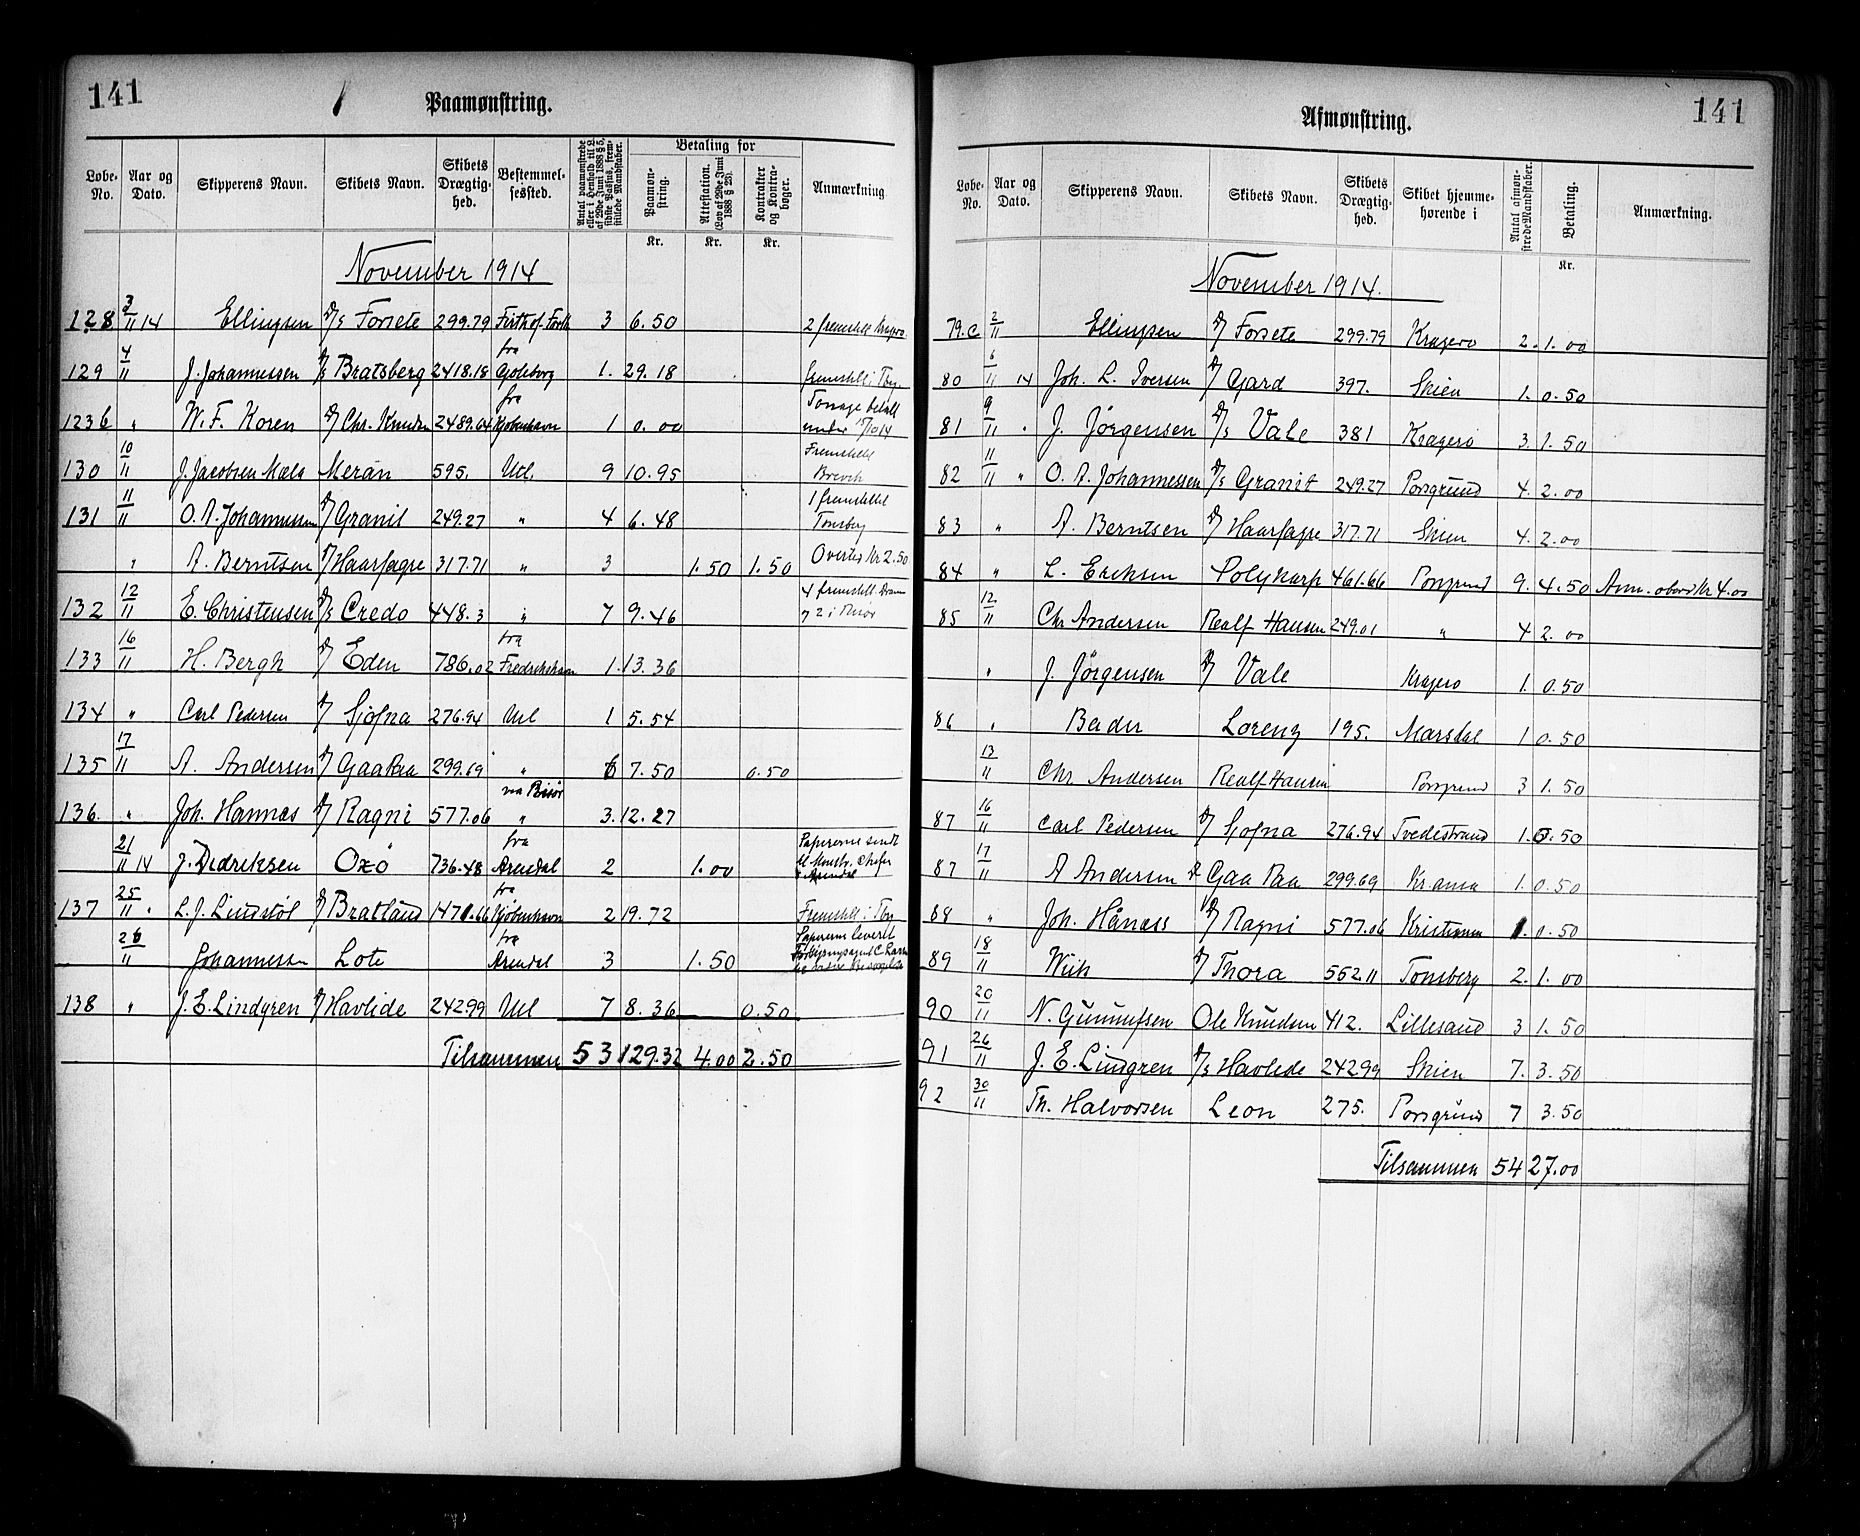 141
Paamønstring.
Løbe-No. Aar og Dato. Skipperens Navn. Skibets Navn. Skibets Drægtig-hed. Bestemmel-sessted. Antal paamønstrede eller i Henhold til L. af 29de Juni 1888 § 5, sidste Passus, frem-stillede Mandskaber. Betaling for Paamøn-string. Attestation. (Lov af 29de Juni 1888 § 28). Kontrakter og Kontra-bøger. Anmærkning
Kr. Kr. Kr.
November 1914
128 3/11 14 Ellingsen D/S Forsete 299.79 Firth of Forth 3 6.50 2 fremstillt Kragerø
129 4/11 J. Johannessen D/S Bratsberg 2418.18 fra Gjøteborg 1. 29.18 fremstillt i Tbg
123b " W. F. Koren D/ Chr. Knudsen 2489.64 fra Kjøbenhavn 1 0.00 Tonnage betalt under 15/10 14
130 10/11 J. Jacobsen Mæla Meran 595. Utl. 9 10.95 Fremstillt Brevik
131 11/11 O. A. Johannessen D/ Granit 249.27 " 4 6.48 1 fremstillt Tønsberg
" A. Berntsen D/ Haarfagre 317.71 " 3 1.50 1.50 Overtid Kr 2.50
132 12/11 E. Christensen D/S Credo 448.3 " 7 9.46 4 fremstillt Dram 2 i Risør
133 16/11 H. Bergh D/ Eden 786.02 fra Fredrikshavn 1. 13.36
134 " Carl Pedersen D/ Sjofna 276.94 Utl 1 5.54
135 17/11 A. Andersen D/ Gaa Paa 299.69 " 6 7.50 0.50
136. " Joh. Hannas D/ Ragni 577.06 via Risør " 3. 12.27
21/11 14 J. Didriksen Oxö 736.48 fra Arendal 2 1.00 Papirerne sendt til Mønstr. Chefen i Arendal
137 25/11 " L. J. Lindstøl D/ Bratland 1471.66 fra Kjøbenhavn 2 19.72 Fremstillt i Tbg
26/11 Johannessen Lote fra Arendal 3 1.50 Papirerne levert
138 " J. E. Lindgren D/ Havlide 242.99 Utl 7 8.36 0.50
Tilsammen 53 129.32 4.00 2.50
Afmønstring.
141
Løbe-No. Aar og Dato. Skipperens Navn. Skibets Navn. Skibets Drægtig-hed. Skibet hjemme-hørende i Antal afmøn-strede Mandskaber. Betaling. Anmærkning.
Kr.
November 1914.
79.c 2/11 Ellingsen D/ Forsete 299.79 Kragerø 2. 1.00
80 6/11 14 Joh. L. Iversen D/ Gard 397. Skien 1. 0.50
81 9/11 " J. Jörgensen D/S Vale 381 Kragerø 3. 1.50
82 11/11 " O. A. Johannessen D/S Granit 249.27 Porsgrund 4. 2.00
83 " A. Berntsen D/ Haarfagre 317.71 Skien 4. 2.00
84 " L. Eriksen Polykarp 461.66 Porsgrund 9. 4.50 Ann. oberd Kr 4.00
85 12/11 Chr Andersen Realf Hansen 249.01 " 4 2.00
" J. Jörgensen D/ Vale Kragerø 1. 0.50
86 " Bader Lorenz 195. Marstal 1 0.50
13/11 Chr. Andersen Realf Hansen Porsgrund 3 1.50
87 16/11 Carl Pedersen D/ Sjofna 276.94 Tvedestrand 1. 0.50
87 17/11 A Andersen D. Gaa Paa 299.69 Krania 1. 0.50
88 " Joh. Hånass D/ Ragni 577.06 Kristiania 1. 0.50
89 18/11 Wiik D/ Thora 562 11 Tønsberg 2. 1.00
90 20/11 N. Gunnufsen Ole Knudsen 412. Lillesand 3 1.50
91 26/11 J. E. Lindgren D/S Havlide 242.99 Skien 7. 3.50
92 30/11 Th. Halvorsen Leon 275. Porsgrund 7 3.50
Tilsammen 54 27.00